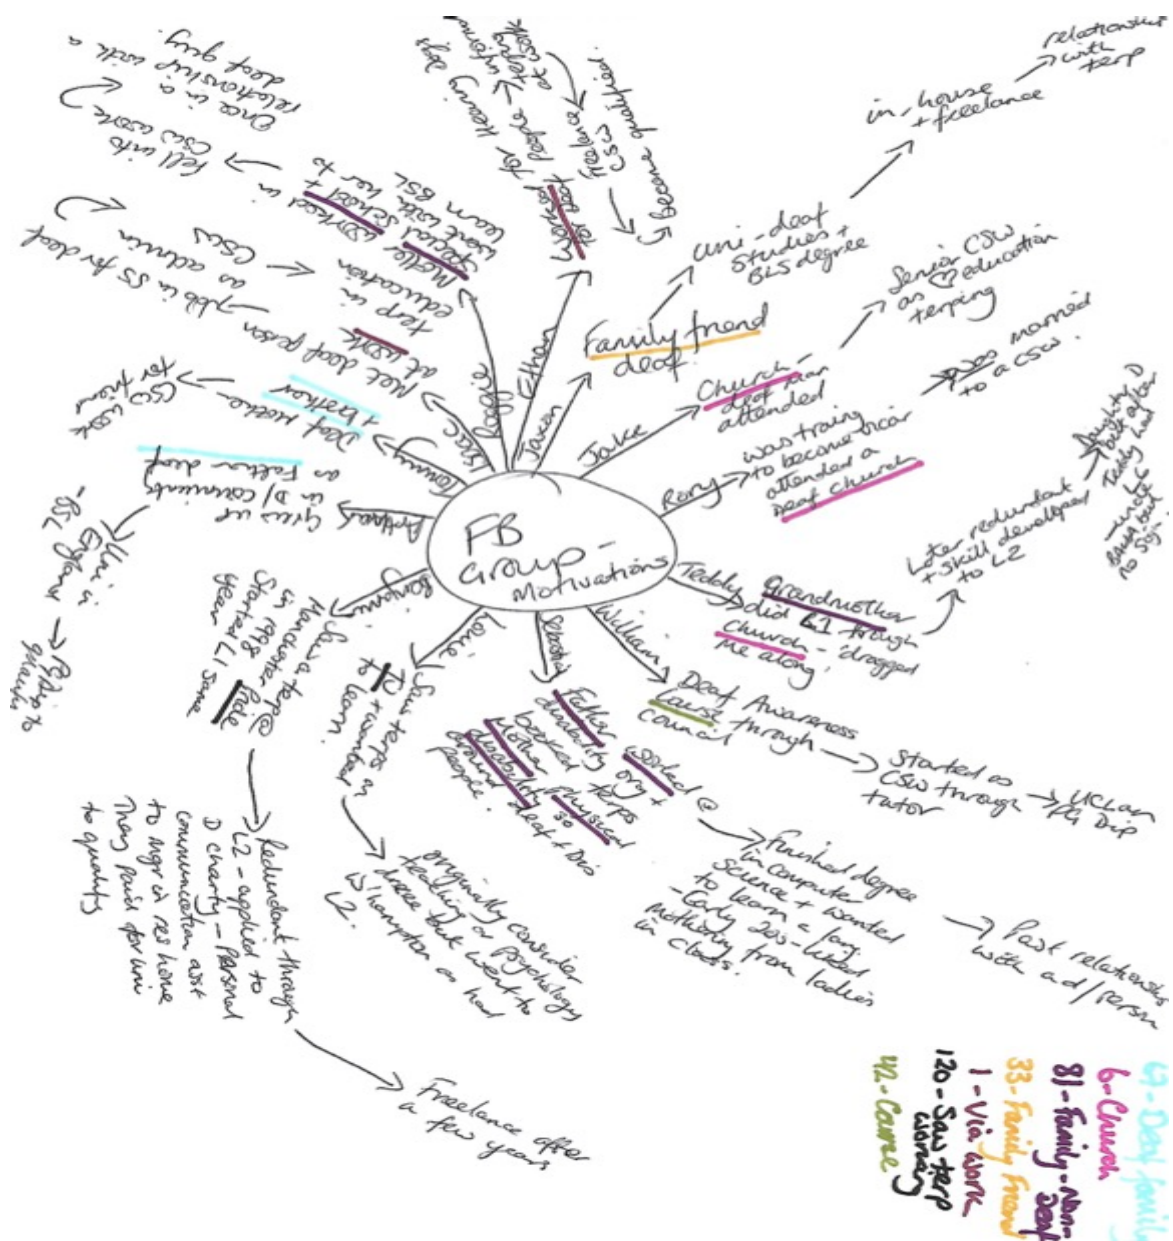 FB
Group -
Motivations
Ethan
worked
for deaf
people
for Hearing dogs
at work
freelance
CSW
become qualified
Jaxon
Family friend
deaf
uni - deaf
Studies +
BLS degree
in-house
+ freelance
relationship
with
terp
Jake
Church -
deaf man
attended
Senior CSW
as ♡ education
terping
Rory
was traing
to become vicar
attended a
Deaf church
was married
to a CSW.
Teddy
Grandmother
did L1 through
Church - 'dragged
me along'
Later redundant
+ skill developed
to L2
William
Deaf Awareness
Course through
council
Started as
CSW through
tutor
UCLan
PG Dip
Sebastian
Father worked @
disability org +
booked terps
Mother physical
disability so
around deaf + Dis
people.
Finished degree
in computer
science + wanted
to learn a lang
- Early 20s - liked
mothering from ladies
in class.
Past relationship
with a d/person
Louie
Saw terps on
TV + wanted
to learn.
originally consider
teaching or psychology
degree but went to
W'hampton as had
L2.
Benjamin
Saw a terp @
Manchester Pride
in 1998
Started L1 same
year
Redundant through
L2 - applied to
D charity - Personal
communication asst
to mgr in res home
They paid for uni
to qualify
Freelance after
a few years
Arthur
Grew up
in D/ community
as Father deaf
Uni in
England
- BSL
Tommy
Deaf mother
+ brother
CSW work
for friend
Isaac
Met deaf person
at work
Job in SS for deaf
as admin
CSW
terp in
education
Mother worked in
special school +
went with her to
learn BSL
fell into
CSW work
Once in a
relationship with a
deaf guy.
67 - Deaf family
6 - Church
81 - Family - Non-
Deaf
33 - Family Friend
1 - Via work
120 - Saw terp
working
42 - Course